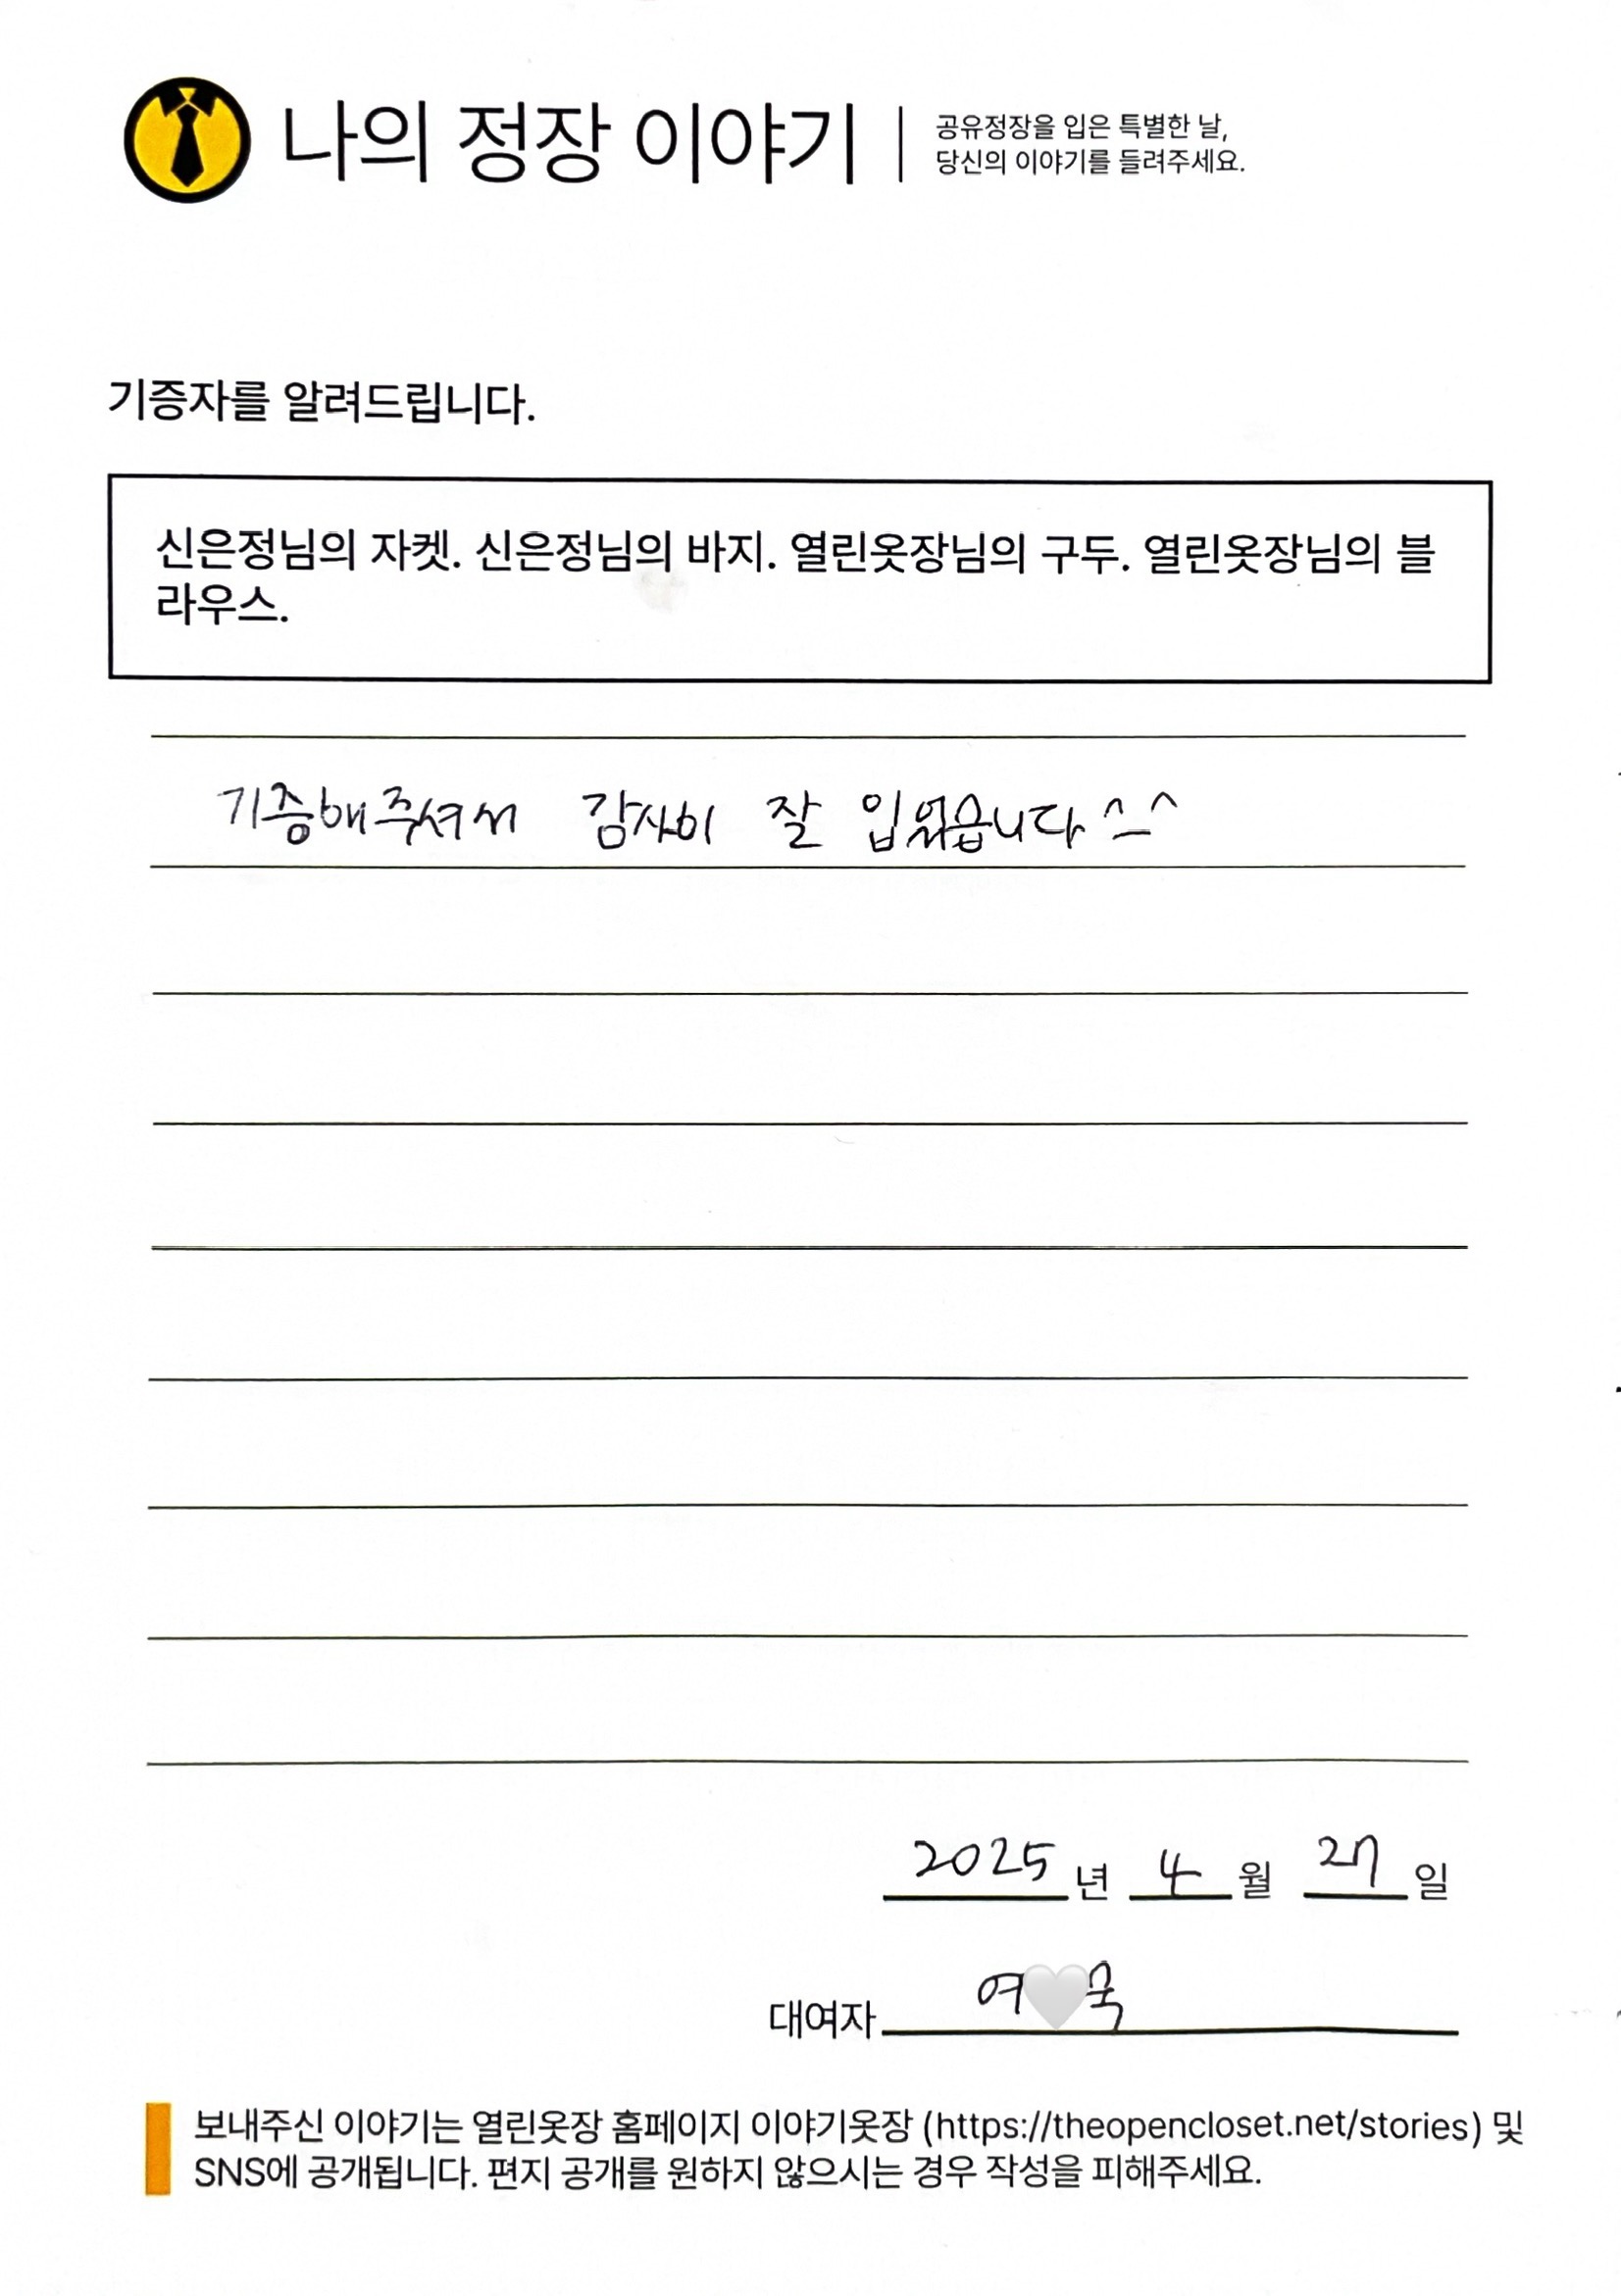 나의 정장 이야기
공유정장을 입은 특별한 날,
당신의 이야기를 들려주세요.
기증자를 알려드립니다.
신은정님의 자켓. 신은정님의 바지. 열린옷장님의 구두. 열린옷장님의 블
라우스.
기증해주셔서 감사히 잘 입었습니다 ^_^
2025년 4월 27일
대여자 여🤍욱
보내주신 이야기는 열린옷장 홈페이지 이야기옷장 (https://theopencloset.net/stories) 및
SNS에 공개됩니다. 편지 공개를 원하지 않으시는 경우 작성을 피해주세요.